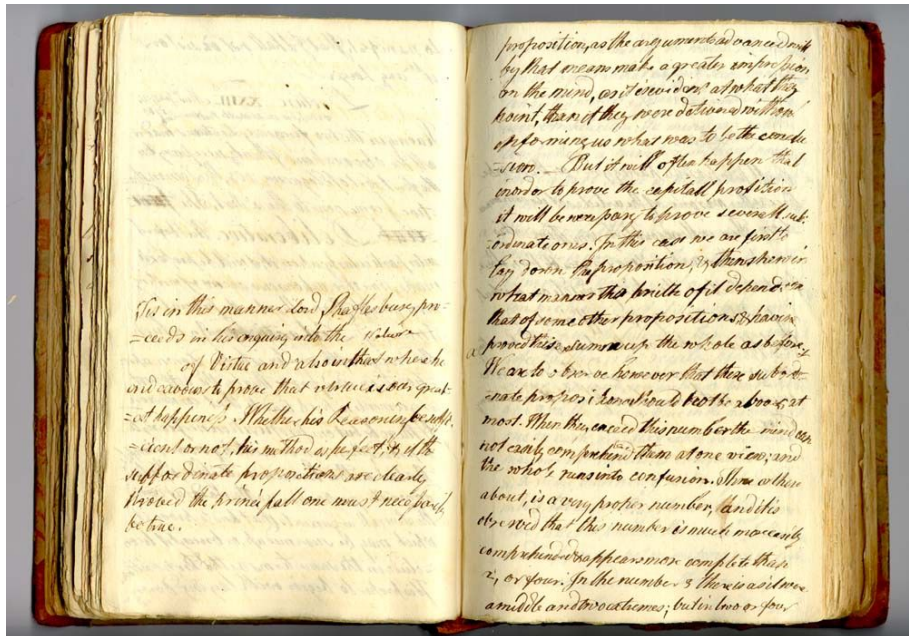 Tis in this manner Lord Shaftesbury pro=
=ceeds in his enquiry into the Nature
of Virtue and also in that where he
endeavours to prove that virtue is our great=
=est happiness. Whether his Reasoning be suffi=
=cient or not, his method is perfect, & if the
suppordinate propositions are clearly
proved the principall one must necessarily
be true.
proposition, as the arguments advanced will
by that means make a greater impression
on the mind, as it is evident at what they
point, than if they were delivered without
informing us what was to be the conclu
=sion. But it will often happen that
in order to prove the capitall proposition
it will be necessary to prove severall sub=
=ordinate ones. In this case we are first to
lay down the proposition, & then shew in
what manner the truth of it depends on
that of some other propositions & having
proved these summ up the whole as before.
We are to observe however that these subord=
=nate propositions should not be above 5 at
most. When they exceed this number the mind can
not easily comprehend them at one view; and
the whole runs into confusion. Three or there
about, is a very proper number, and it is
observed that this number is much more easily
comprehended & appears more complete than
2, or four. In the number 3 there is as it were
a middle and two extremes; but in two or four